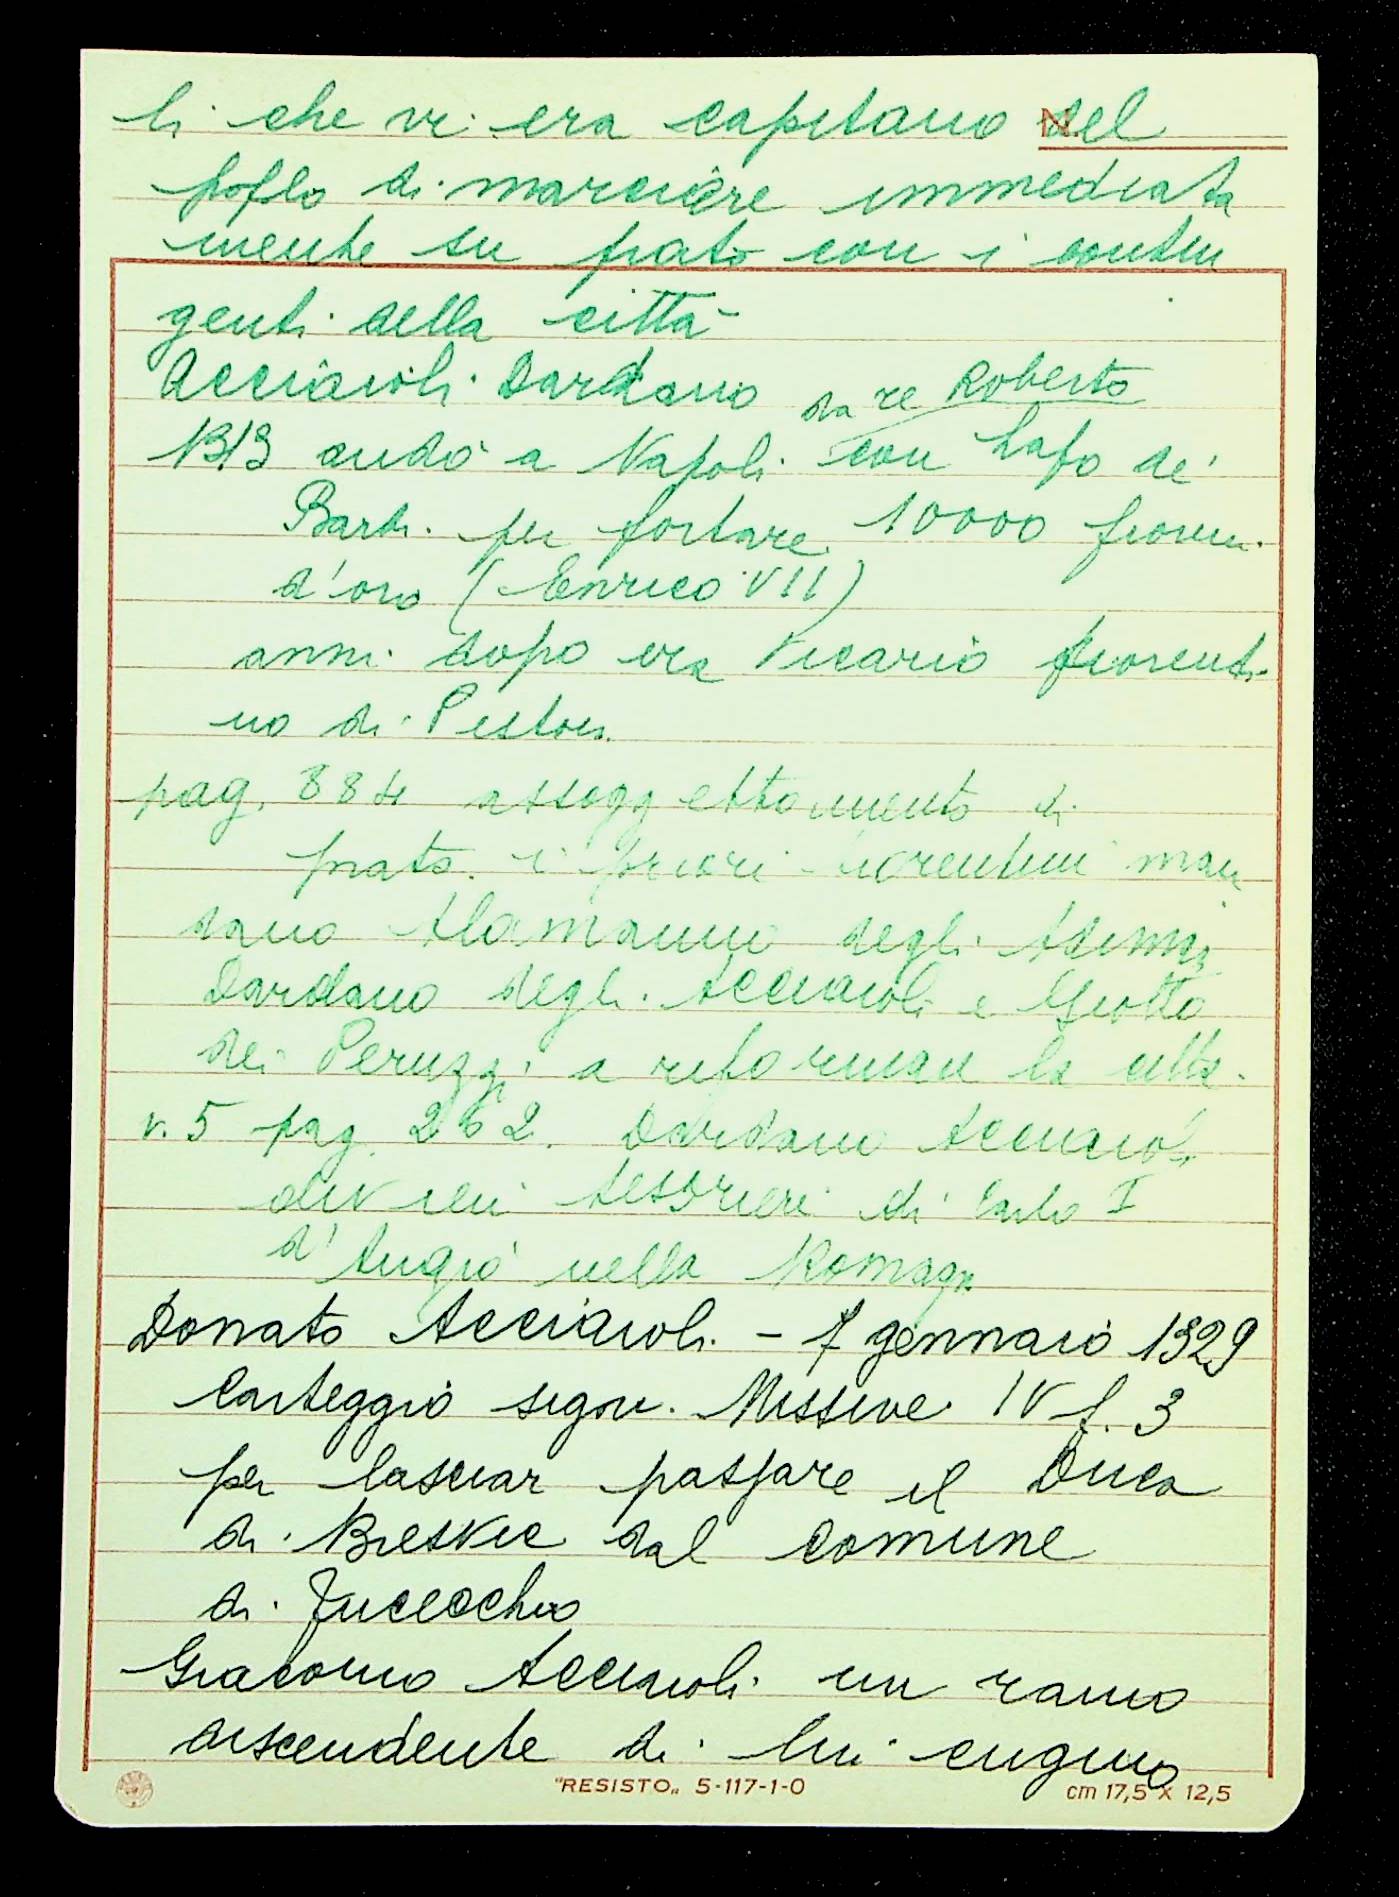 li che vi era capitano del
N.
popolo di marciare immediata
mente su prato con i contin
genti della città
Acciaioli Dardano da re Roberto
1313 andò a Napoli con Lapo de'
Bardi per portare 10000 fiorini
d'oro (Enrico VII)
anni dopo era Vicario fiorenti
no di Pistoia
pag. 884 assoggettamento di
prato. i priori fiorentini man
dano Alamanno degli Adimari
Dardano degli Acciaioli e Giotto
dei Peruzzi a riformare la città.
v. 5 pag. 262. Dardano Acciaioli
divieni tesorieri di Carlo I
d'Angiò nella Romagna
Donato Acciaioli - 7 gennaio 1329
Carteggio sign. Missive IV f. 3
per lasciar passare il Duca
di dal comune
di Fucecchio
Giacomo Acciaioli un ramo
discendente di lui
"RESISTO„ 5-117-1-0
cm 17,5 x 12,5